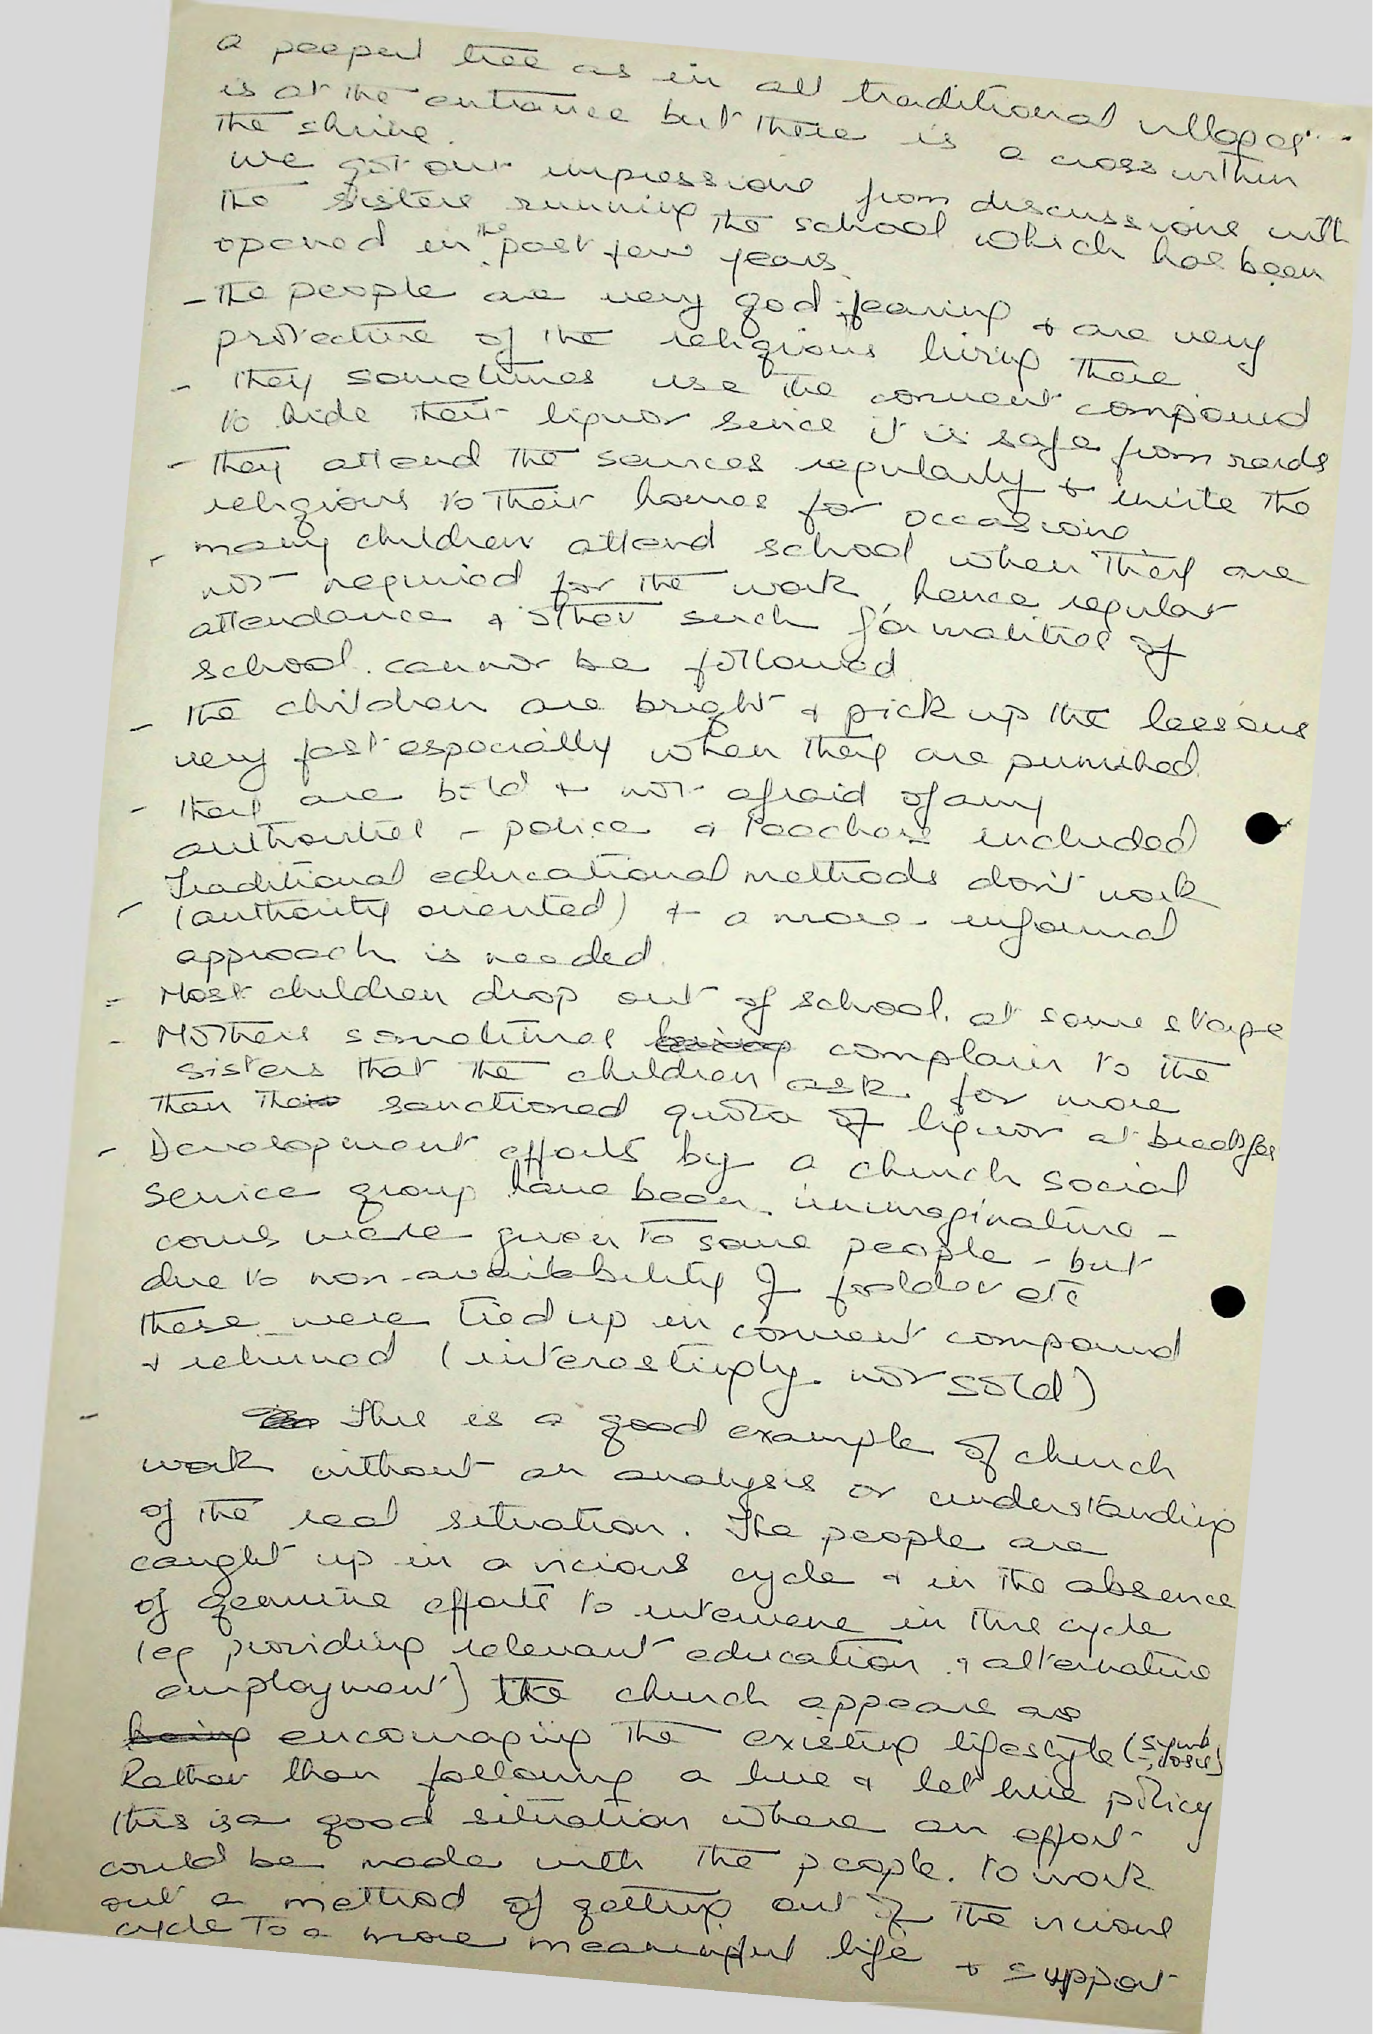 a peepul tree as in all traditional villages
is at the entrance but there is a cross within
the shrine.
We got our impressions from discussions with
the sisters running the school which has been
opened in the past few years.
- The people are very god-fearing & are very
protective of the religious living there
- They sometimes use the convent compound
to hide their liquor since it is safe from raids
- they attend the services regularly & invite the
religious to their homes for occasions
- many children attend school when they are
not required for the work, hence regular
attendance & other such formalities of
school cannot be followed
- The children are bright & pick up the lessons
very fast especially when they are punished
- they are bold & not afraid of any
authorities - police & teachers included
- Traditional educational methods don't work
(authority oriented) & a more informal
approach is needed.
- Most children drop out of school at some stage
- Mothers sometimes being complain to the
sisters that the children ask for more
than their sanctioned quota of liquor at breakfas
- Development efforts by a church social
service group have been unimaginative -
cows were given to some people - but
due to non-availability of fodder etc
these were tied up in convent compound
& returned (interestingly not sold)
- This is a good example of church
work without an analysis or understanding
of the real situation. The people are
caught up in a vicious cycle & in the absence
of genuine efforts to intervene in this cycle
(eg providing relevant education & alternative
employment) the church appears as
being encouraging the existing lifestyle (symb
-iosis)
Rather than following a live & let live policy
this is a good situation where an effort
could be made with the people to work
out a method of getting out of the vicious
cycle to a more meaningful life & support